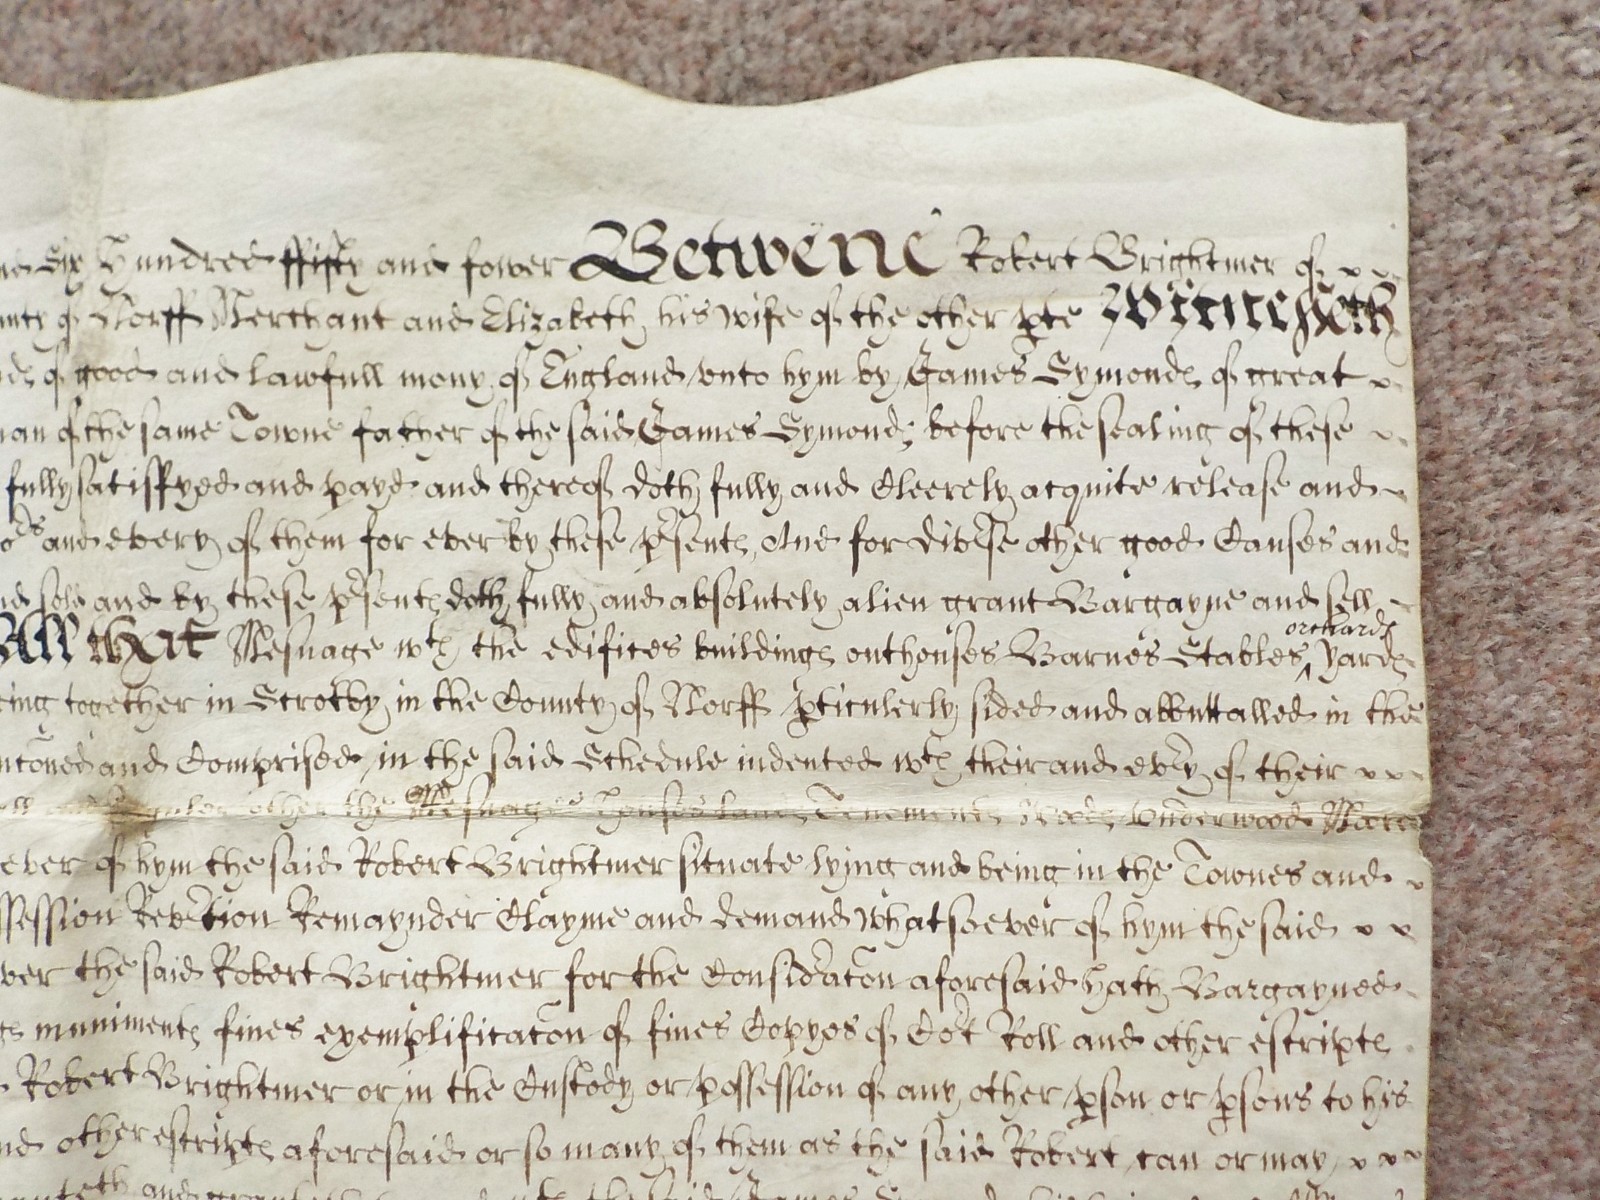 Six Hundred ffifty and fower Betwene Robert Brightmer of
of Norff Merchant and Elizabeth his wife of the other pte Witnesseth
of good and lawfull mony of England vnto hym by James Symondes of great
man of the same Towne father of the said James Symondes before the sealing of these
fully satisffyed and payd and thereof doth fully and Cleerely acquite release and
and every of them for ever by these pŕsentes And for divŕse other good Causes and
sold and by these pŕsentes doth fully and absolutely alien grant Bargayne and sell
orchardes
All that Mesuage wth the edifices buildinges outhouses Barnes Stables ^ yardes
being together in Scrotby in the County of Norff pticulerly sided and abbuttalled in the
and Comprised in the said Schedule indented wth their and evŕy of their
other the Mesuages Houses landes Tenementes Woodes Vnderwoode
ever of hym the said Robert Brightmer situate lying and being in the Townes and
ssession Revŕtion Remaynder Clayme and demand whatsoever of hym the said
ver the said Robert Brightmer for the Considŕacon aforesaid hath Bargayned
munimentes fines exemplificacon of fines Copyes of Cort Roll and other escriptes
Robert Brightmer or in the Custody or possession of any other pson or psons to his
and other escriptes aforesaid or so many of them as the said Robert can or may